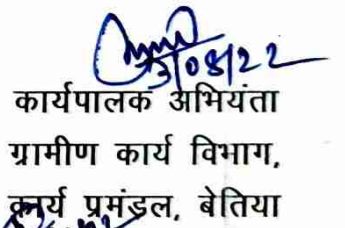 3/08/22
कार्यपालक अभियंता
ग्रामीण कार्य विभाग,
कार्य प्रमंडल, बेतिया